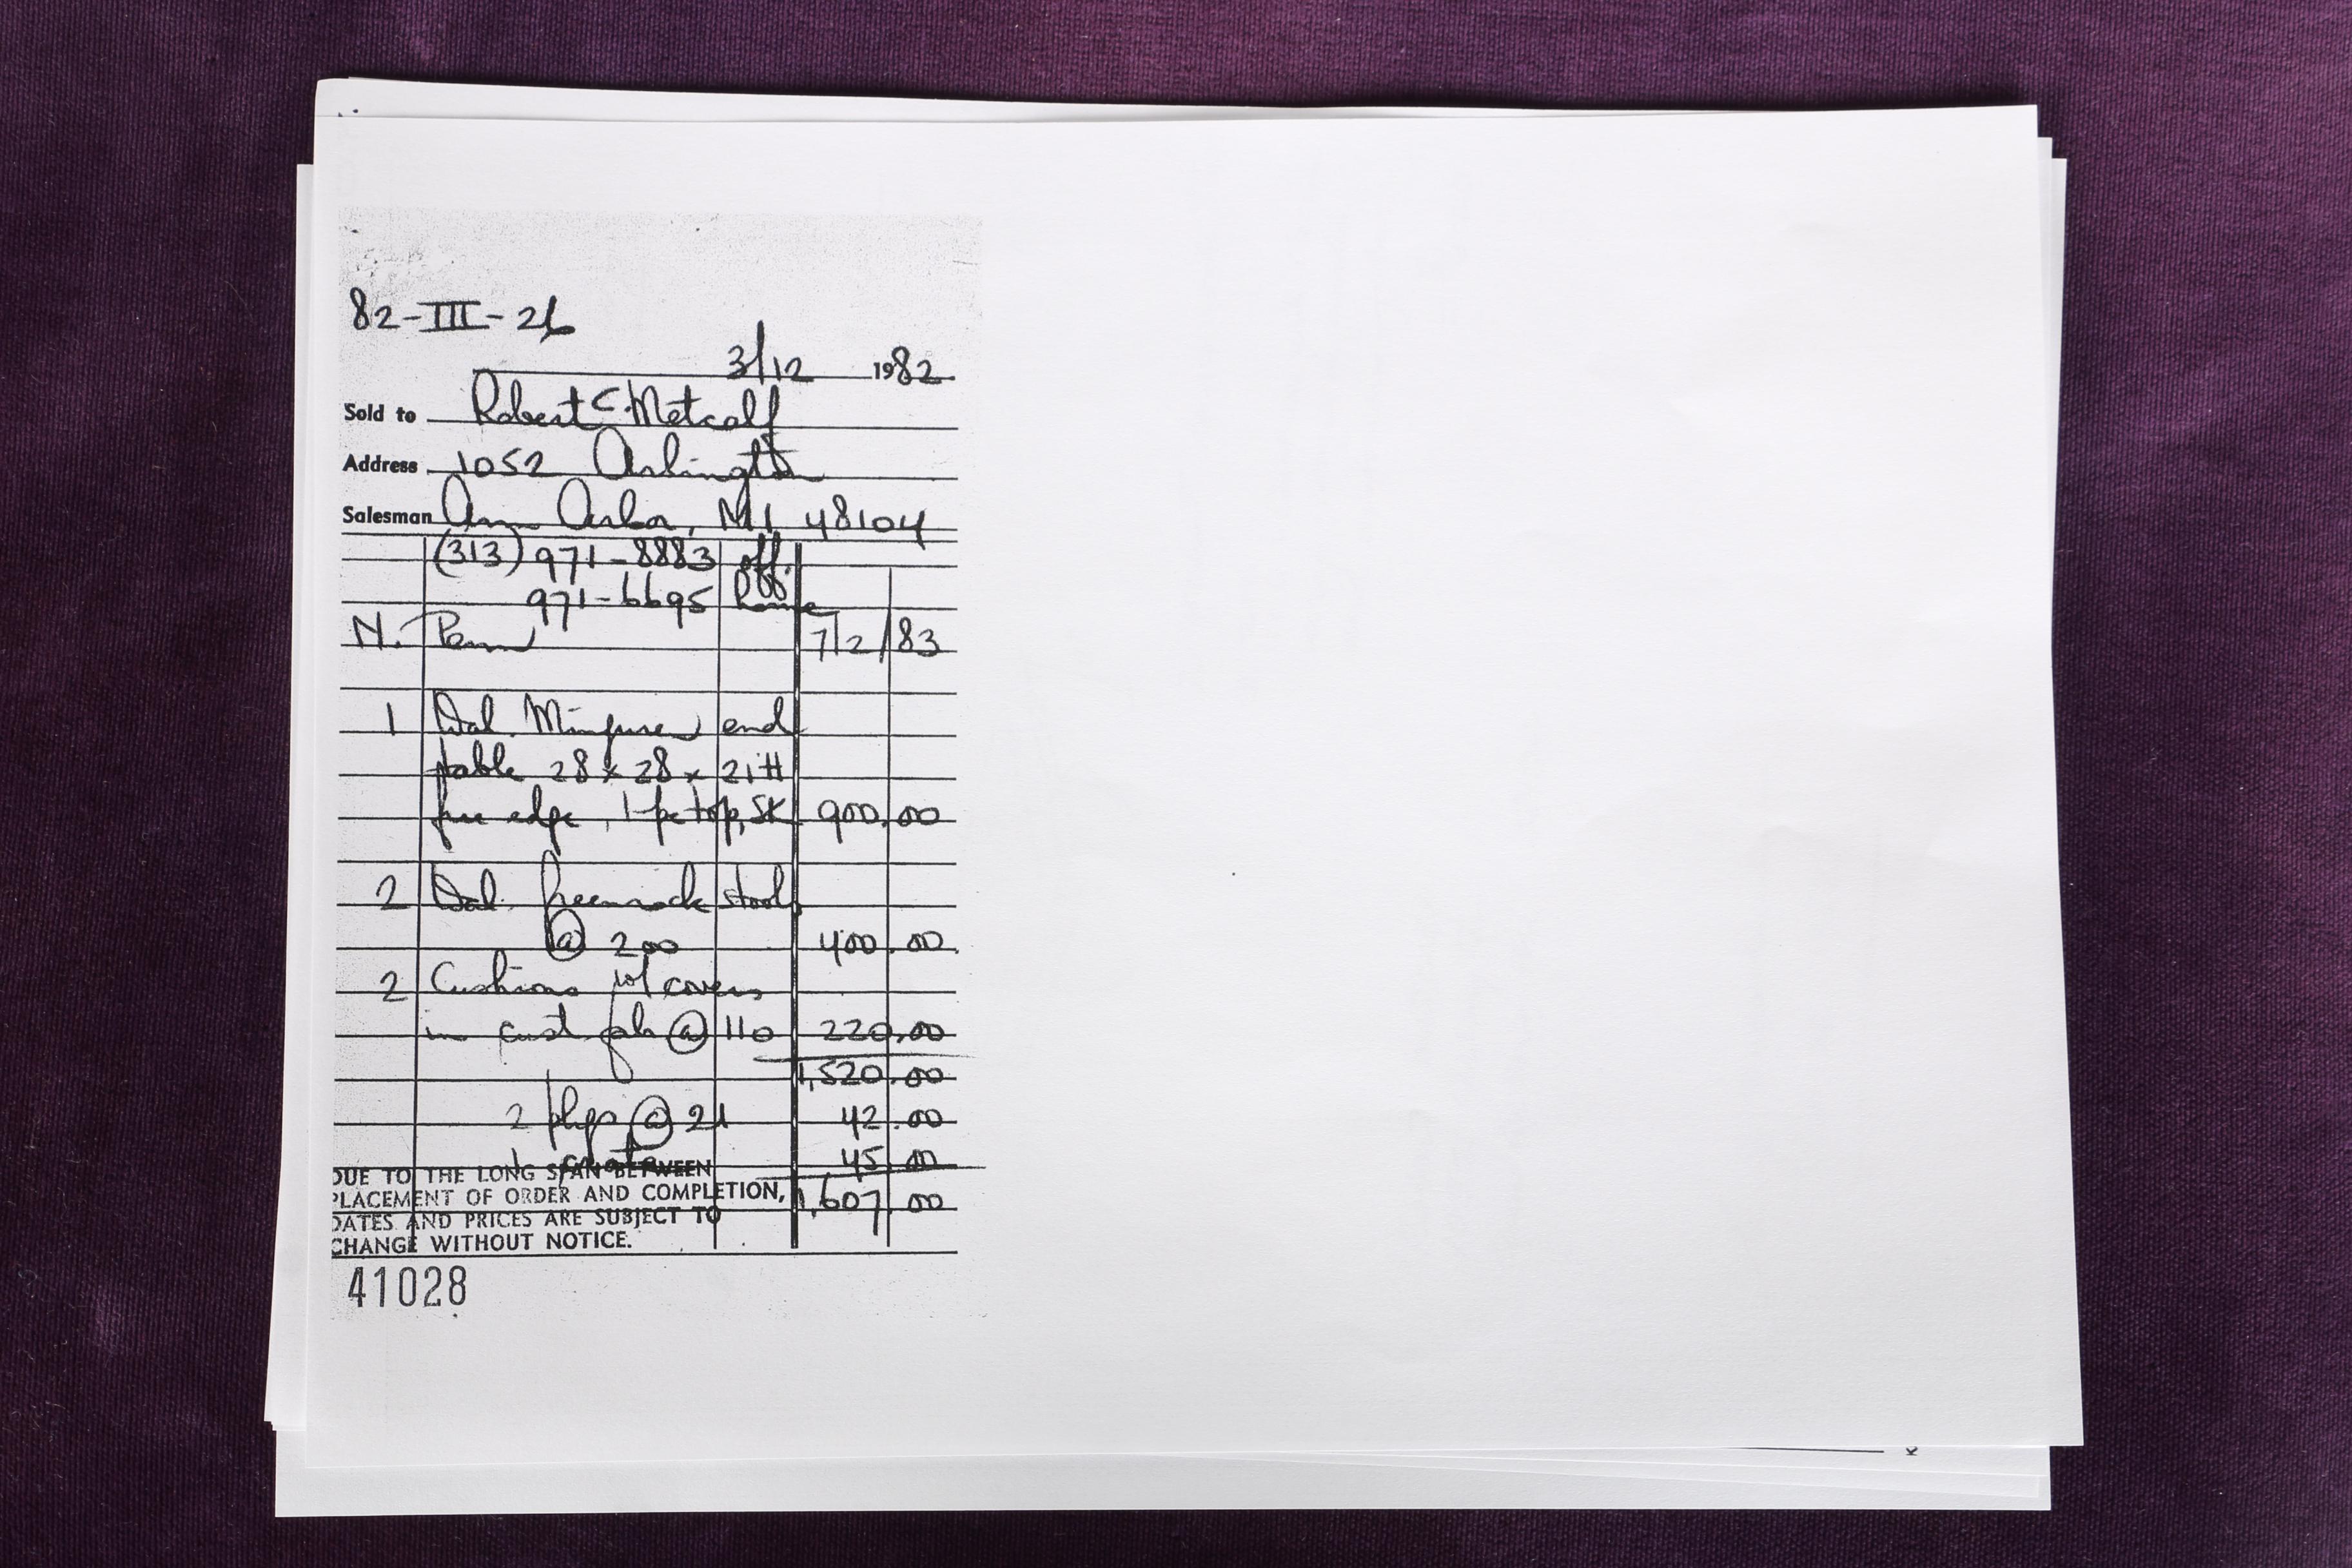 82-III-26
3/12 1982
Sold to Robert C. Metcalf
Address 1052 Arlington
Salesman Ann Arbor, MI 48104
(313) 971-8883 off.
971-6695 home
N. Penn 7/2/83
1 Wal. Minguren end
table 28 x 28 x 21 H
free edge, 1-pc top, SK 900.00
2 Wal. Greenrock stools
@ 200 400.00
2 Cushions w/ covers
in cust. fab @ 110 220.00
1,520.00
2 phgs @ 21 42.00
1 crate 45.00
DUE TO THE LONG SPAN BETWEEN
PLACEMENT OF ORDER AND COMPLETION, 1,607.00
DATES AND PRICES ARE SUBJECT TO
CHANGE WITHOUT NOTICE.
41028